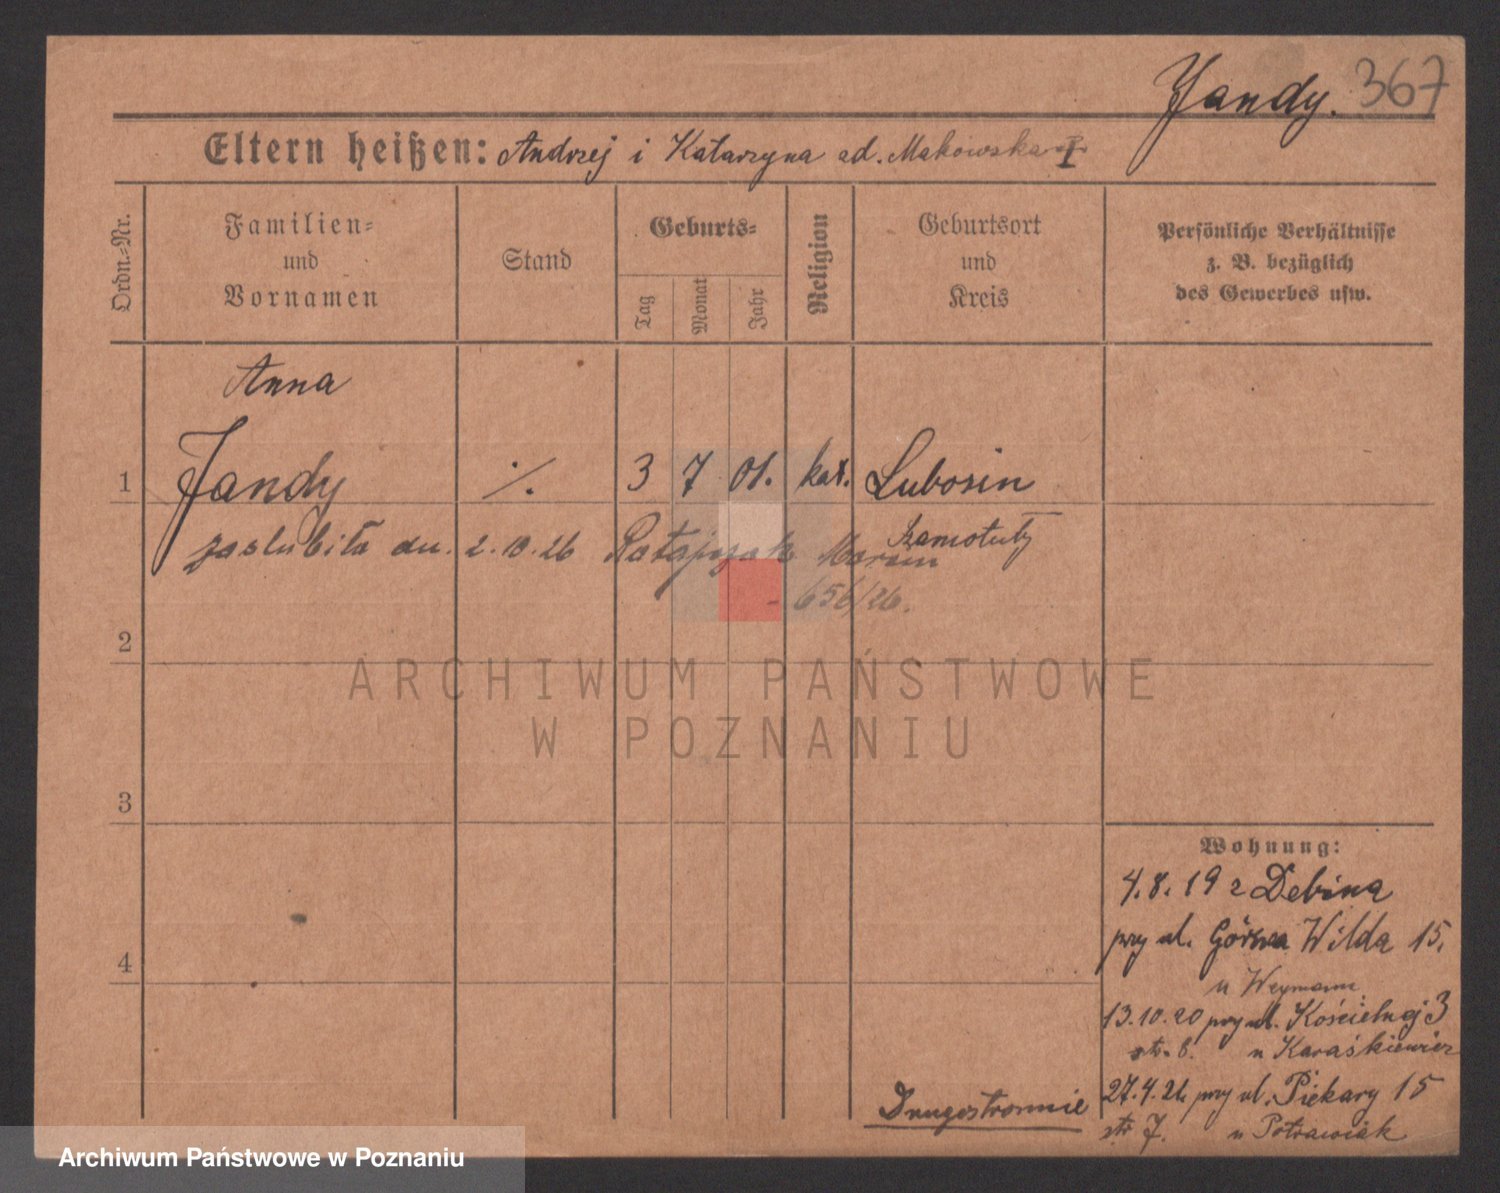 Jandy. 367
Eltern heißen: Andrzej i Katarzyna ad. Makowska
Ordn.-Nr.
Familien-
und
Vornamen
Stand
Geburts-
Tag
Monat
Jahr
Religion
Geburtsort
und
Kreis
Persönliche Verhältnisse
z. B. bezüglich
des Gewerbes usw.
Anna
1 Jandy ./. 3 7 01. kat. Lubosin
Szamotuły
zaślubiła dn. 2.10.26 Ratajczak Marcin
- 656/26.
2
ARCHIWUM PAŃSTWOWE
W POZNANIU
3
4
Wohnung:
4.8.19 z Dębina
przy ul. Górna Wilda 15.
u Weymann
13.10.20 przy ul. Kościelnej 3
str. 8. u Karaśkiewicz
27.4.21 przy ul. Piekary 15
str 7. u Potrawiak
Drugostronnie
Archiwum Państwowe w Poznaniu